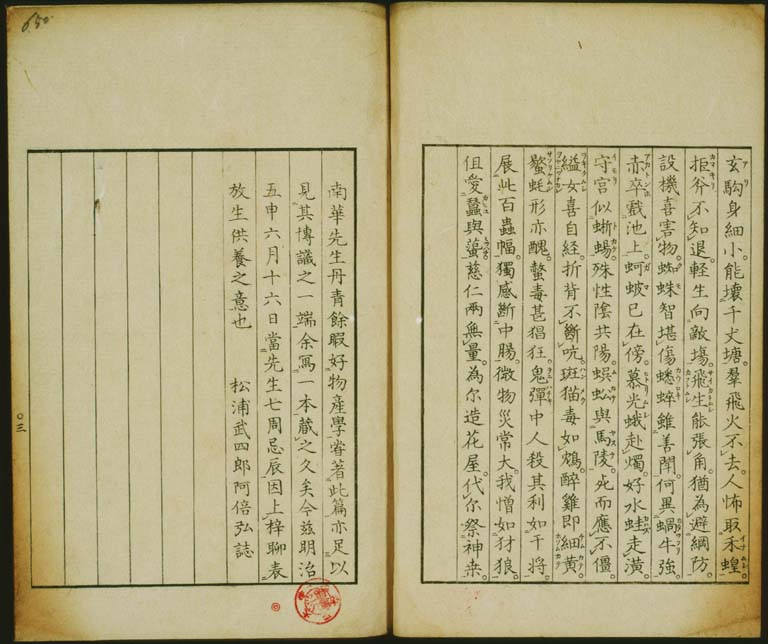 玄駒身細小。能壊千丈塘。羣飛火不去。人怖取禾蝗。
拒斧不知退。軽生向敵場。飛生能張角。猶為避網防。
設機喜害物。蜘蛛智堪傷。蟋蟀雖善閗。何異蝸牛強。
赤卒戯池上。蚵蚾已在傍。慕光蛾赴燭。好水蛙走潢。
守宮似蜥蜴。殊性陰共陽。蜈蚣與馬陵。死而應不僵。
縊女喜自経。折背不斷吭。斑猫毒如鴆。醉雞即細黄。
螌蚝形亦醜。螫毒甚猖狂。鬼彈中人殺其利如干将。
展此百蟲幅。獨感斷中腸。微物災常大。我憎如犲狼。
伹愛蠶與蜜。慈仁兩無量。為尓造花屋。代尓祭神桒。
南華先生丹青餘暇好物産學嘗著此篇亦足以
見其博識之一端余寫一本蔵之久矣今茲明治
五申六月十六日當先生七周忌辰因上梓聊表
放生供養之意也　松浦武四郎阿倍弘誌
〇三